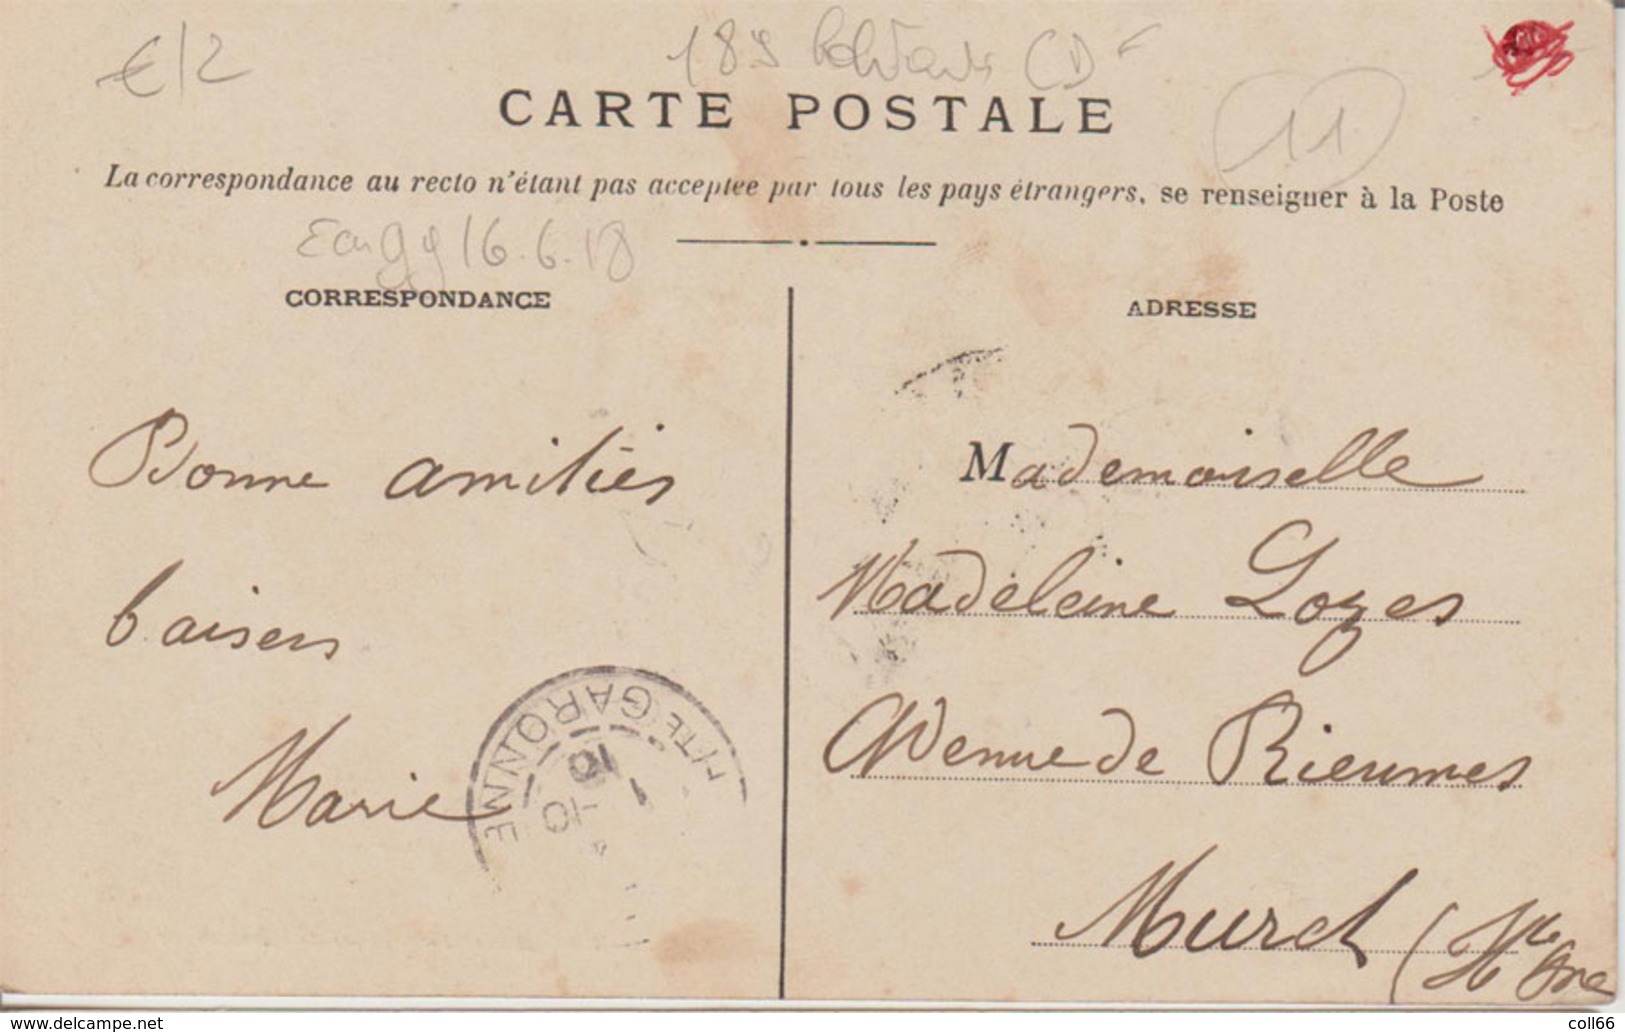 €/2
189
11
CARTE POSTALE
La correspondance au recto n'étant pas acceptée par tous les pays étrangers, se renseigner à la Poste
16.6.18
CORRESPONDANCE
ADRESSE
Bonne amitiés
baisers
Marie
Hte GARONNE
Mademoiselle
Madeleine Lozes
Avenue de Rieumes
Muret (Hte Gne
http://www.delcampe.net
coll66